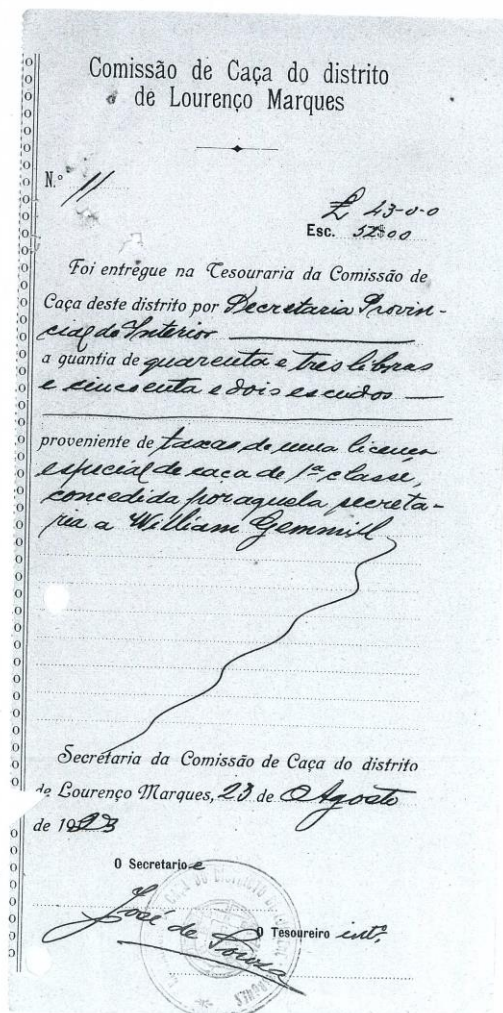 Comissão de Caça do distrito
de Lourenço Marques
N.º 11
£ 43-0-0
Esc. 52$00
Foi entregue na Tesouraria da Comissão de
Caça deste distrito por Secretaria Provin-
cial do Interior
a quantia de quarenta e tres libras
e cincoenta e dois escudos
proveniente de taxas de uma licença
especial de caça de 1ª classe,
concedida por aquela secreta-
ria a William Gemmill
Secretaria da Comissão de Caça do distrito
de Lourenço Marques, 23 de Agosto
de 1923
O Secretario e
José de Sousa
O Tesoureiro intº